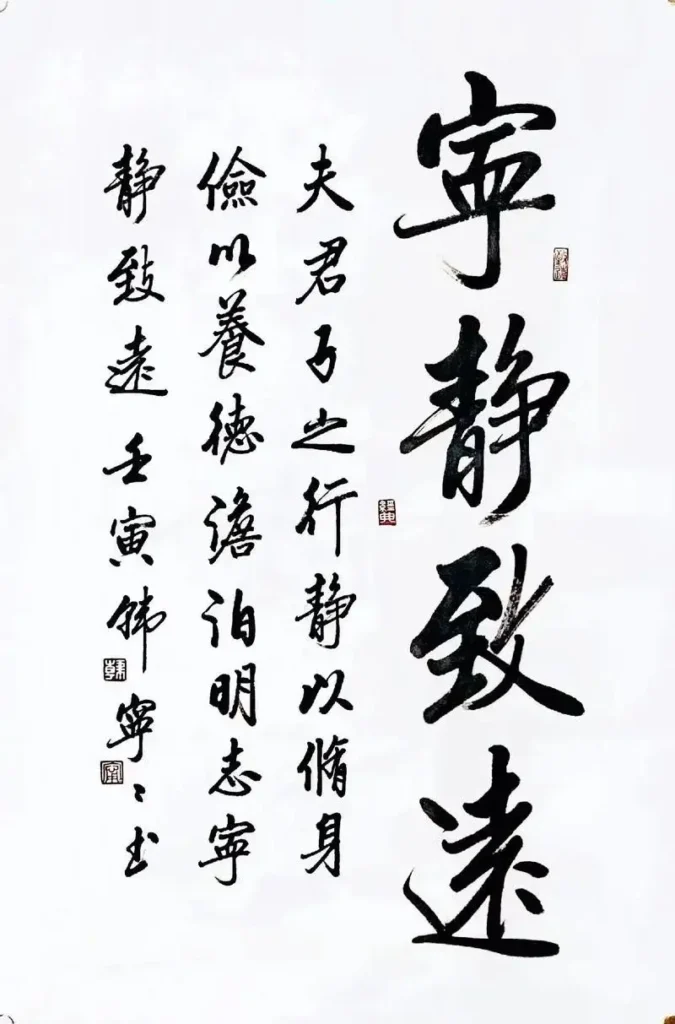 寧静致遠
夫君子之行静以脩身
儉以養德澹泊明志寧
静致遠 壬寅 韩寧〻书